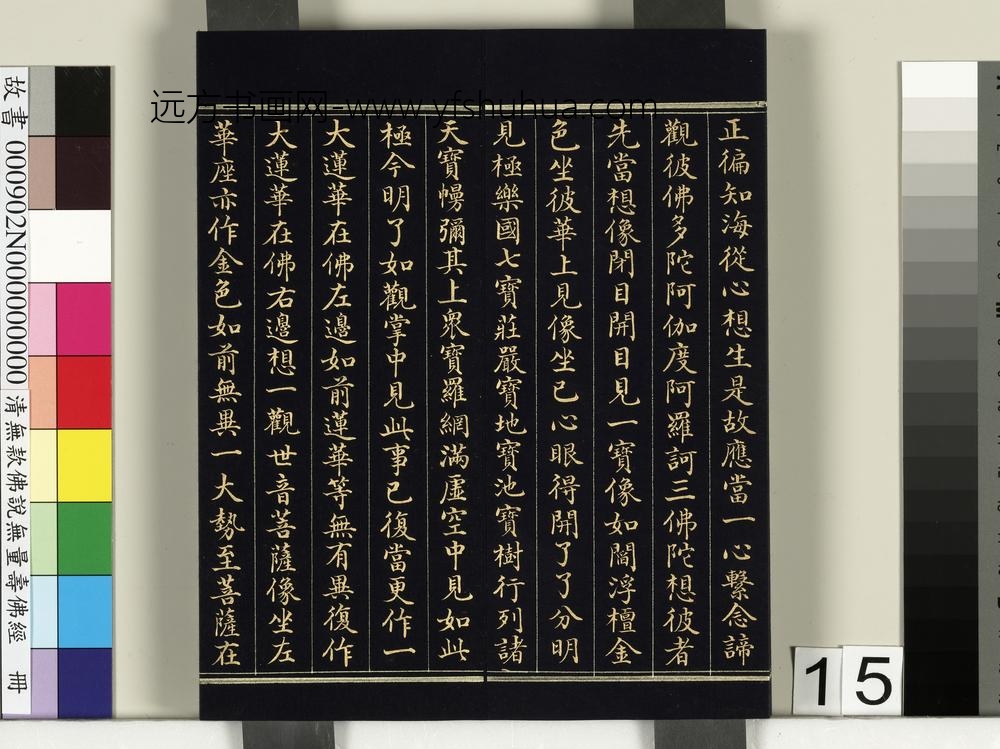 正徧知海從心想生是故應當一心繫念諦
觀彼佛多陀阿伽度阿羅訶三佛陀想彼者
先當想像閉目開目見一寶像如閻浮檀金
色坐彼華上見像坐已心眼得開了了分明
見極樂國七寶莊嚴寶地寶池寶樹行列諸
天寶幔彌其上眾寶羅網滿虛空中見如此
極令明了如觀掌中見此事已復當更作一
大蓮華在佛左邊如前蓮華等無有異復作
大蓮華在佛右邊想一觀世音菩薩像坐左
華座亦作金色如前無異一大勢至菩薩在
远方书画网-www.yfshuhua.com
故書 000902N000000000 清無款佛說無量壽佛經 冊
15